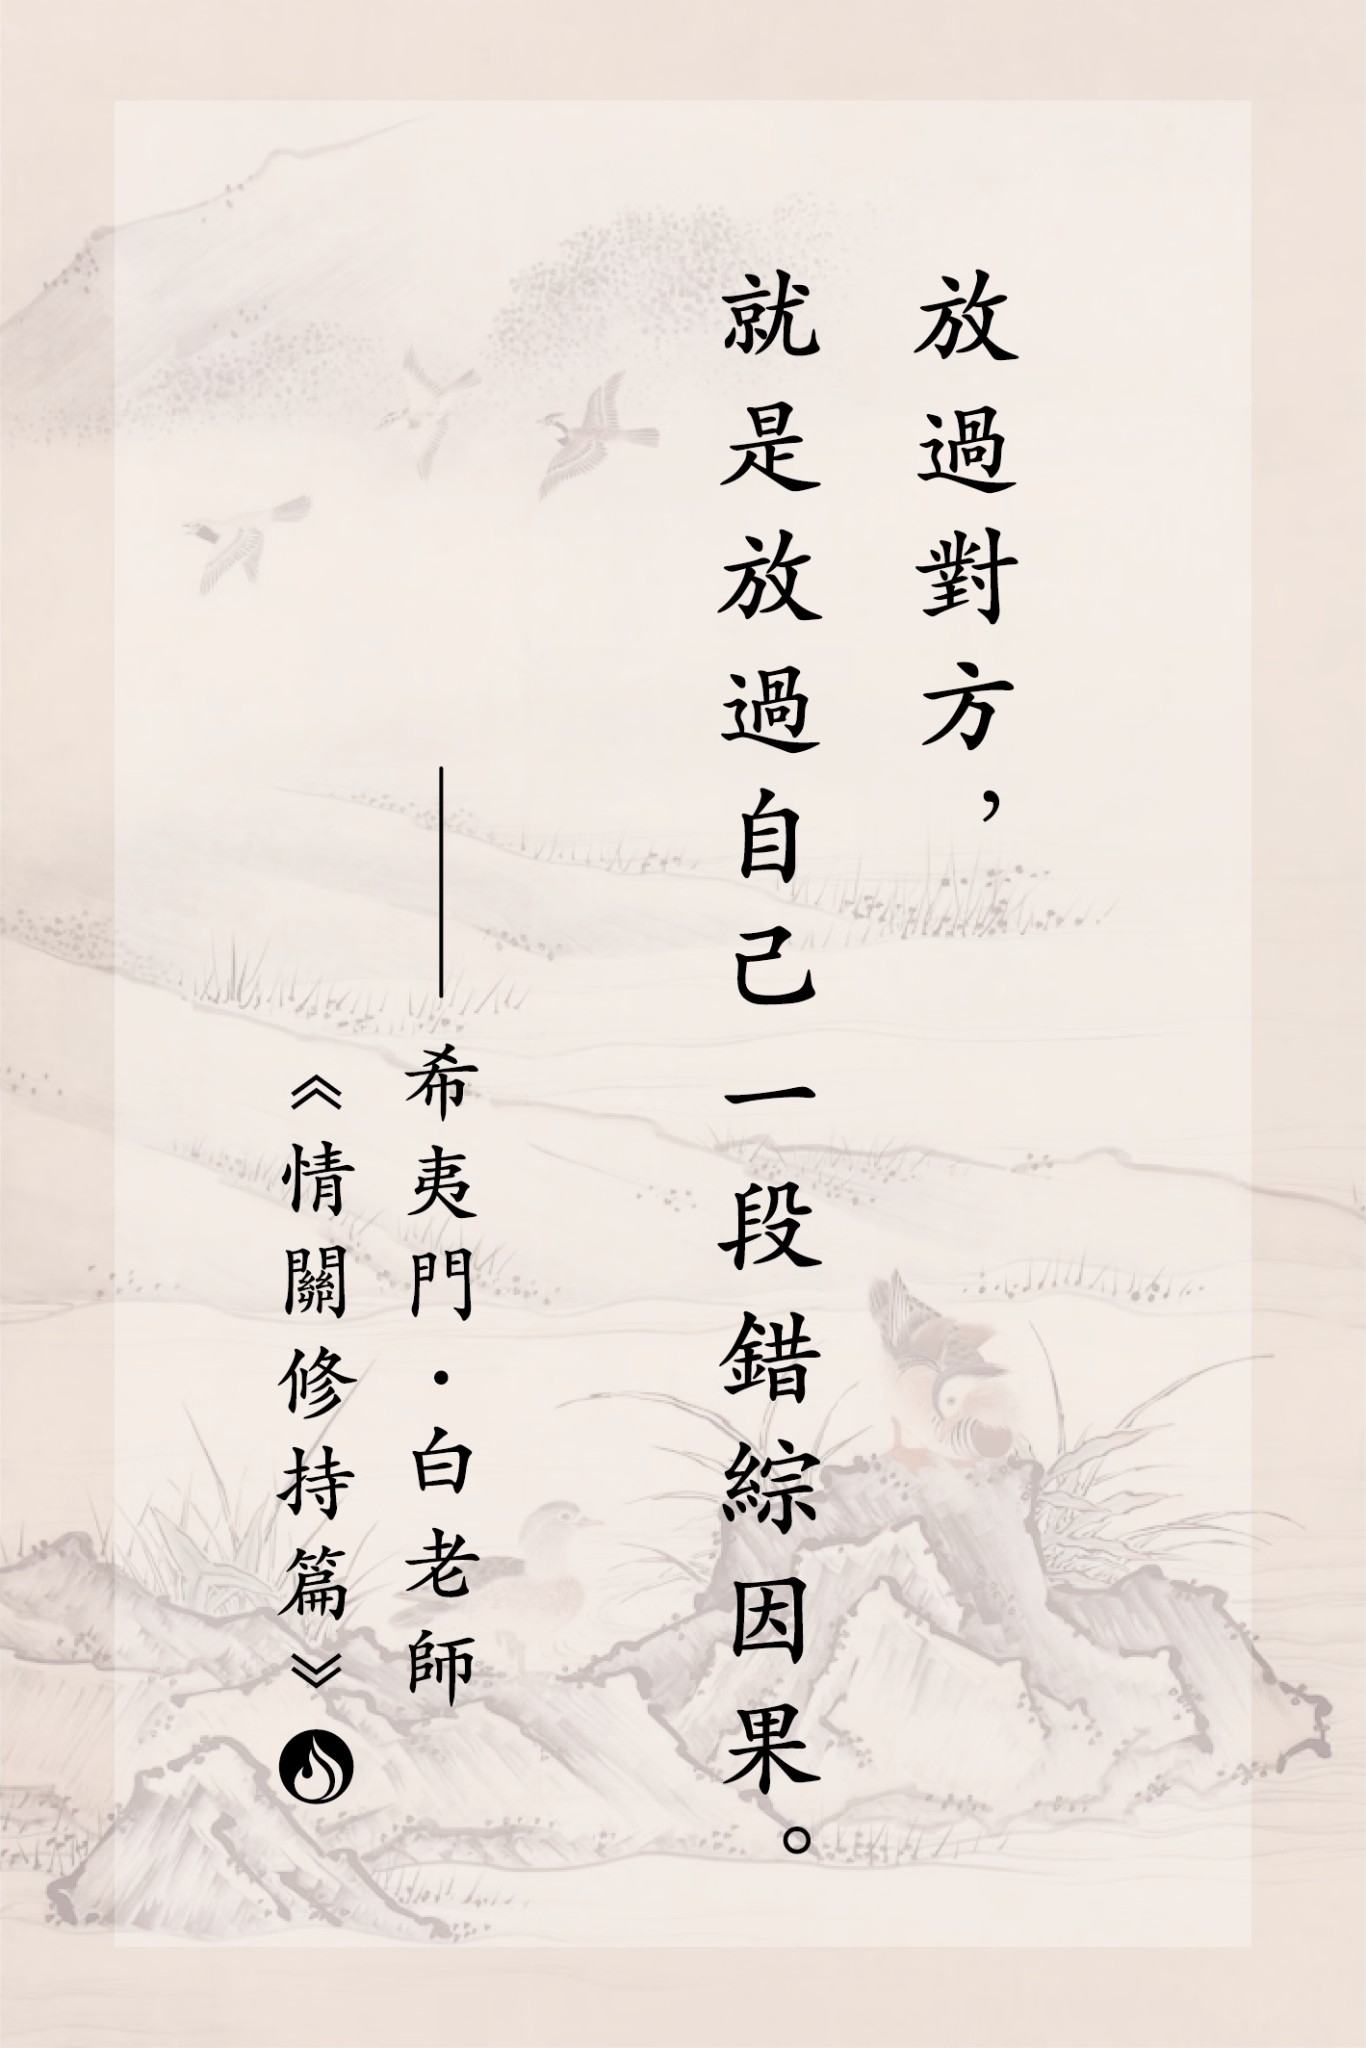 放過對方，
就是放過自己一段錯綜因果。
——希夷門．白老師
《情關修持篇》